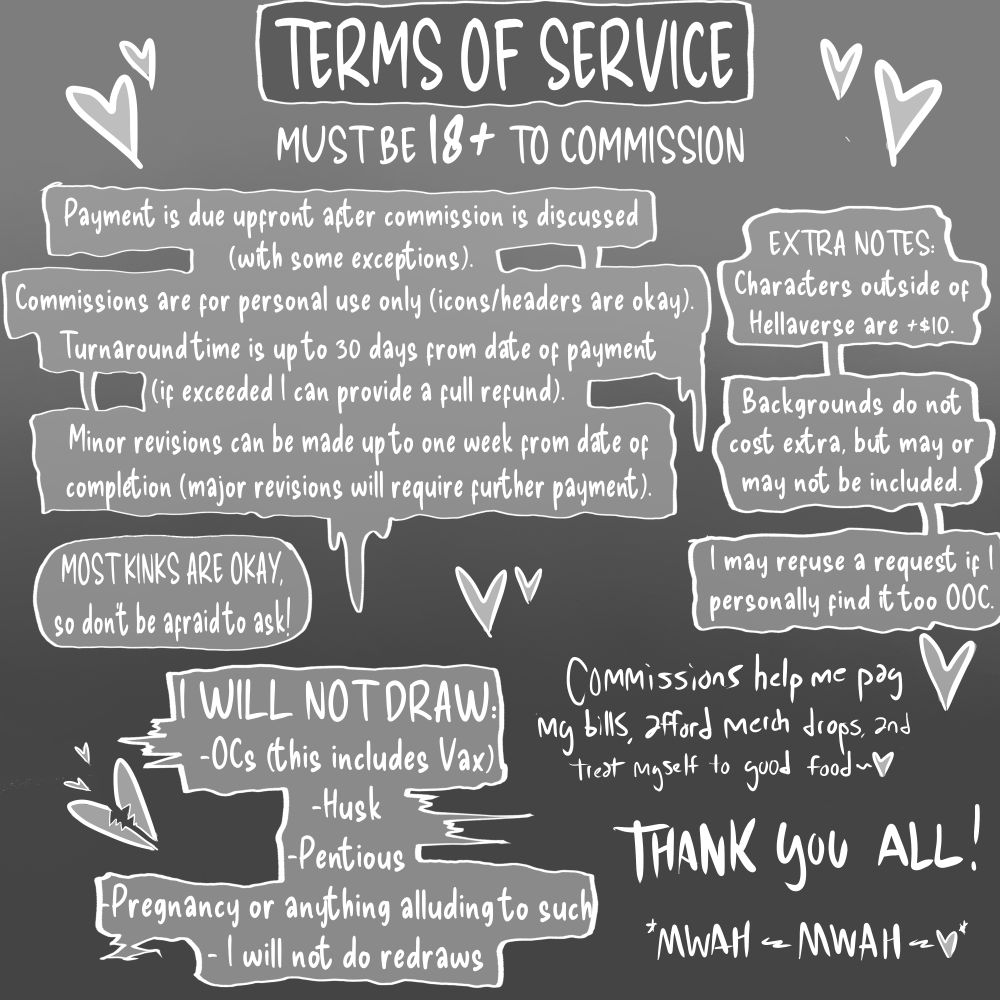 TERMS OF SERVICE
MUST BE 18+ TO COMMISSION
Payment is due upfront after commission is discussed
(with some exceptions).
Commissions are for personal use only (icons/headers are okay).
Turnaround time is up to 30 days from date of payment
(if exceeded I can provide a full refund).
Minor revisions can be made up to one week from date of
completion (major revisions will require further payment).
EXTRA NOTES:
Characters outside of
Hellaverse are +$10.
Backgrounds do not
cost extra, but may or
may not be included.
I may refuse a request if I
personally find it too OOC.
MOST KINKS ARE OKAY,
so don't be afraid to ask!
I WILL NOT DRAW:
-OCs (this includes Vax)
-Husk
-Pentious
-Pregnancy or anything alluding to such
- I will not do redraws
Commissions help me pay
my bills, afford merch drops, and
treat myself to good food~♥
THANK YOU ALL!
*MWAH ~ MWAH ~♥*